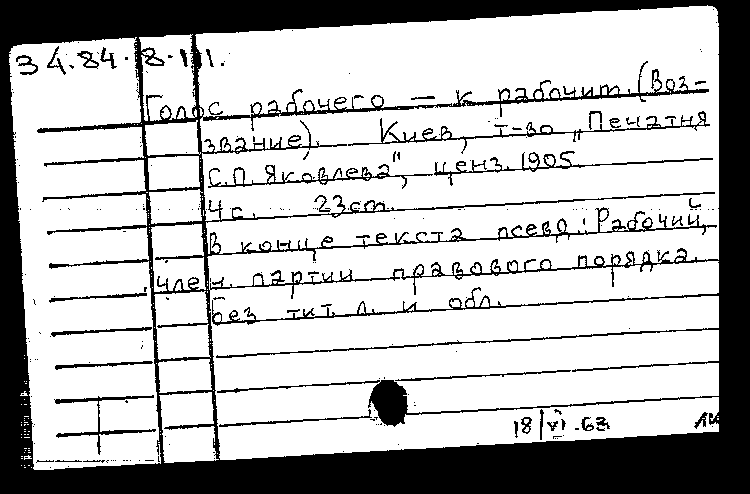 34.84.8.III.
Голос рабочего — к рабочим. (Воз-
звание). Киев, т-во „Печатня
С.П. Яковлева", ценз. 1905.
4 с. 23 ст.
В конце текста псевд.: Рабочий,
член партии правового порядка.
Без тит. л. и обл.
18/VI.63